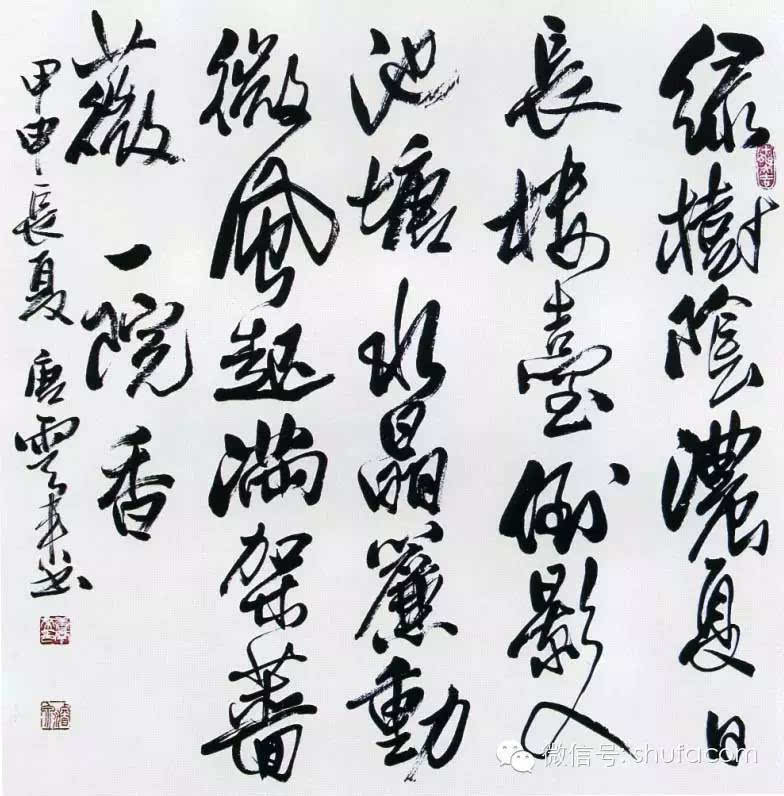 緑樹陰濃夏日
長樓臺倒影入
池塘水晶簾動
微風起滿架薔
薇一院香
甲申長夏唐雲來書
微信号: shufacom